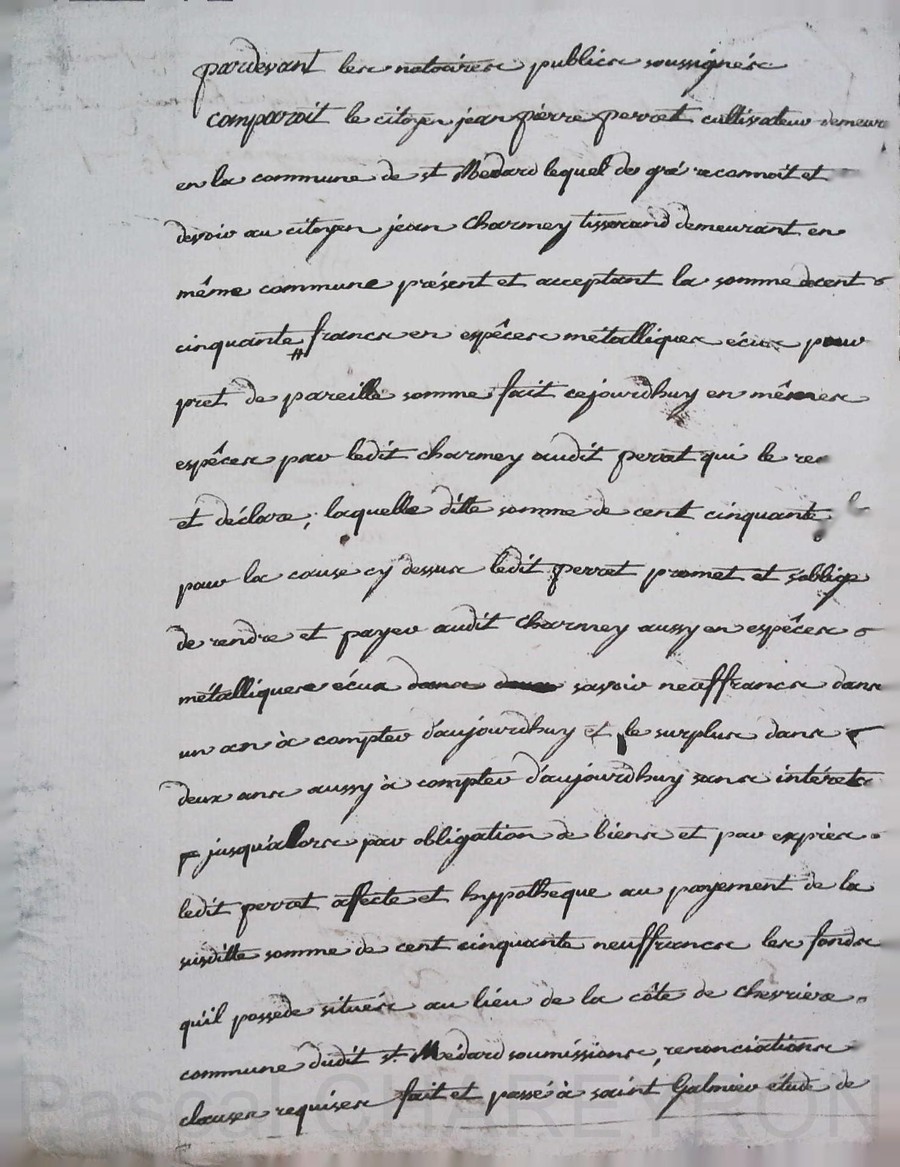 pardevant les notaires publics soussignés
comparoit le citoyen jean pierre perrot cultivateur demeur
en la commune de st Medard lequel de gré reconnoit et
devoir au citoyen jean Charmey tisserand demeurant en
même commune présent et acceptant la somme decent
cinquante francs en espêces métalliques écus pour
pret de pareille somme fait cejourdhuy en mêmes
espêces par ledit charmey audit perrot qui le re
et déclare, laquelle ditte somme de cent cinquante
pour la cause cy dessus ledit perrot promet et s'oblige
de rendre et payer audit Charmey aussy en espêces
métalliques écus dans savoir neuffrancs dans
un an à compter d'aujourdhuy et le surplus dans
deux ans aussy à compter d'aujourdhuy sans intérets
jusqu'alors par obligation de biens et par exprès
ledit perrot affecte et hypotheque au payement de la
susditte somme de cent cinquante neuffrancs les fonds
qu'il possede situés au lieu de la côte de chevrière
commune dudit st Médard soumissions, renonciations
clauses requises fait et passé à saint Galmier étude de
Pascal CHAREYRON